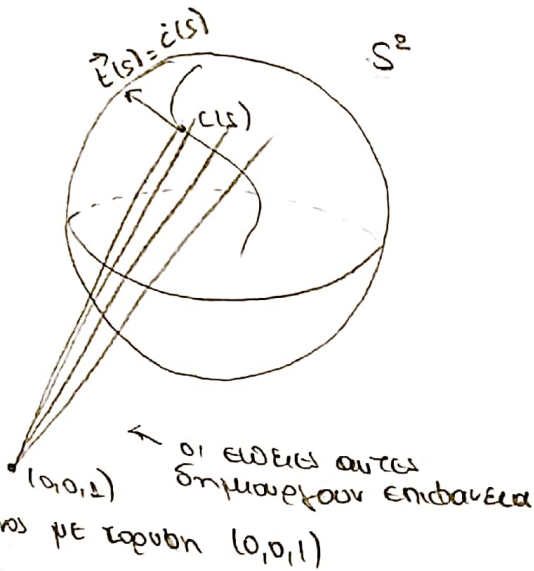 S²
t⃗(s)=ċ(s)
c(s)
(0,0,1)
← οι ευθειες αυτες
δημιουργουν επιφανεια
νος με κορυφη (0,0,1)